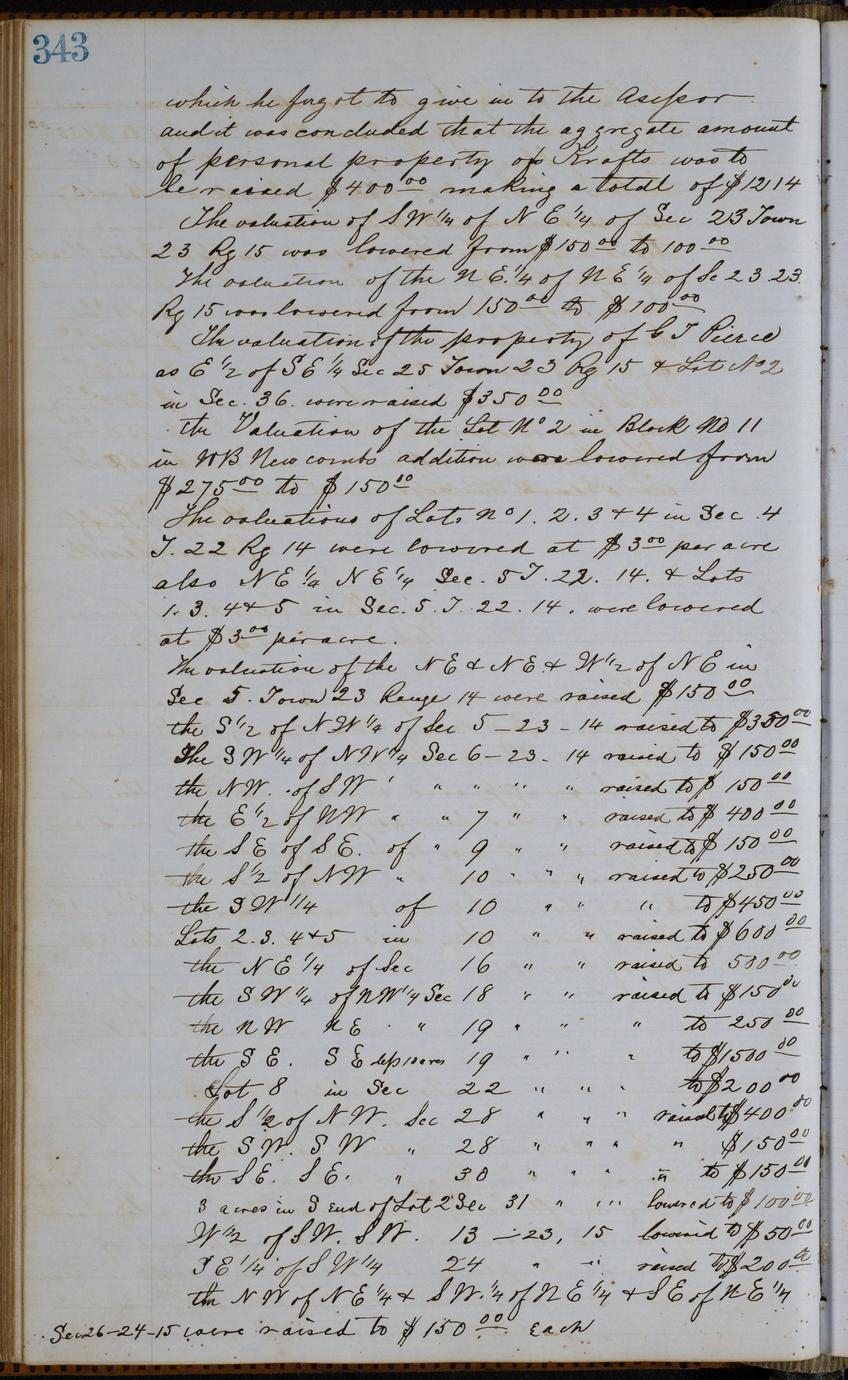 343
which he forgot to give in to the Assessor
and it was concluded that the aggregate amount
of personal property of Krafts was to
be raised $400.00 making a totall of $1214
The valuation of SW 1/4 of NE 1/4 of Sec 23 Town
23 Rg 15 was lowered from $150.00 to 100.00
The valuation of the NE 1/4 of NE 1/4 of Se 23 23.
Rg 15 was lowered from 150.00 to $100.00
The valuation of the property of G T Pierce
as E 1/2 of SE 1/4 Sec 25 Town 23 Rg 15 & Lot No 2
in Sec. 36. were raised $350.00
the Valuation of the Lot No 2 in Block No 11
in WB Newcombs addition were lowered from
$275.00 to $150.00
The valuations of Lots No 1. 2. 3 & 4 in Sec. 4
T. 22 Rg 14 were lowered at $3.00 per acre
also NE 1/4 NE 1/4 Sec. 5 T. 22. 14. & Lots
1. 3. 4 & 5 in Sec. 5. T. 22. 14. were lowered
at $3.00 per acre.
The valuation of the NE & NE & W 1/2 of NE in
Sec 5. Town 23 Range 14 were raised $150.00
the S 1/2 of NW 1/4 of Sec 5 – 23 – 14 raised to $350.00
The SW 1/4 of NW 1/4 Sec 6 – 23 - 14 raised to $150.00
the NW. of SW " " " " " raised to $150.00
the E 1/2 of NW " " 7 " " raised to $400.00
the SE of SE. of " 9 " " raised to $150.00
the S 1/2 of NW " 10 " " " raised to $250.00
the SW 1/4 of 10 " " " to $450.00
Lots 2. 3. 4 & 5 in 10 " " raised to $600.00
the NE 1/4 of Sec 16 " " raised to 500.00
the SW 1/4 of NW 1/4 Sec 18 " " raised to $150.00
the NW NE " 19 " " " to 250.00
the SE. SE less acres 19 " " " to $1500.00
Lot 8 in Sec 22 " " " to $200.00
the S 1/2 of NW. Sec 28 " " " raised to $400.00
the SW. SW " 28 " " " " $150.00
the SE. SE. " 30 " " " " to $150.00
3 acres in S end of Lot 2 Sec 31 " " lowered to $100.00
W 1/2 of SW. SW. 13 – 23, 15 lowered to $50.00
SE 1/4 of SW 1/4 24 " " raised to $200.00
the NW of NE 1/4 & SW. 1/4 of NE 1/4 & SE of NE 1/4
Sec 26–24–15 were raised to $150.00 Each